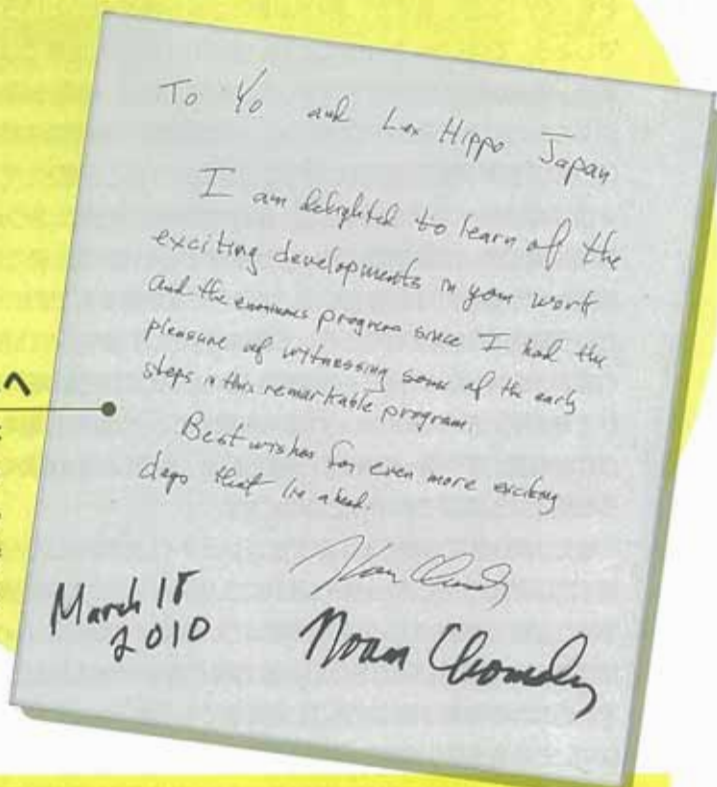 To Yo and Lex Hippo Japan
I am delighted to learn of the
exciting developments in your work
and the enormous progress since I had the
pleasure of witnessing some of the early
steps in this remarkable program.
Best wishes for even more exciting
days that lie ahead.
Noam Chomsky
March 18
2010
Noam Chomsky